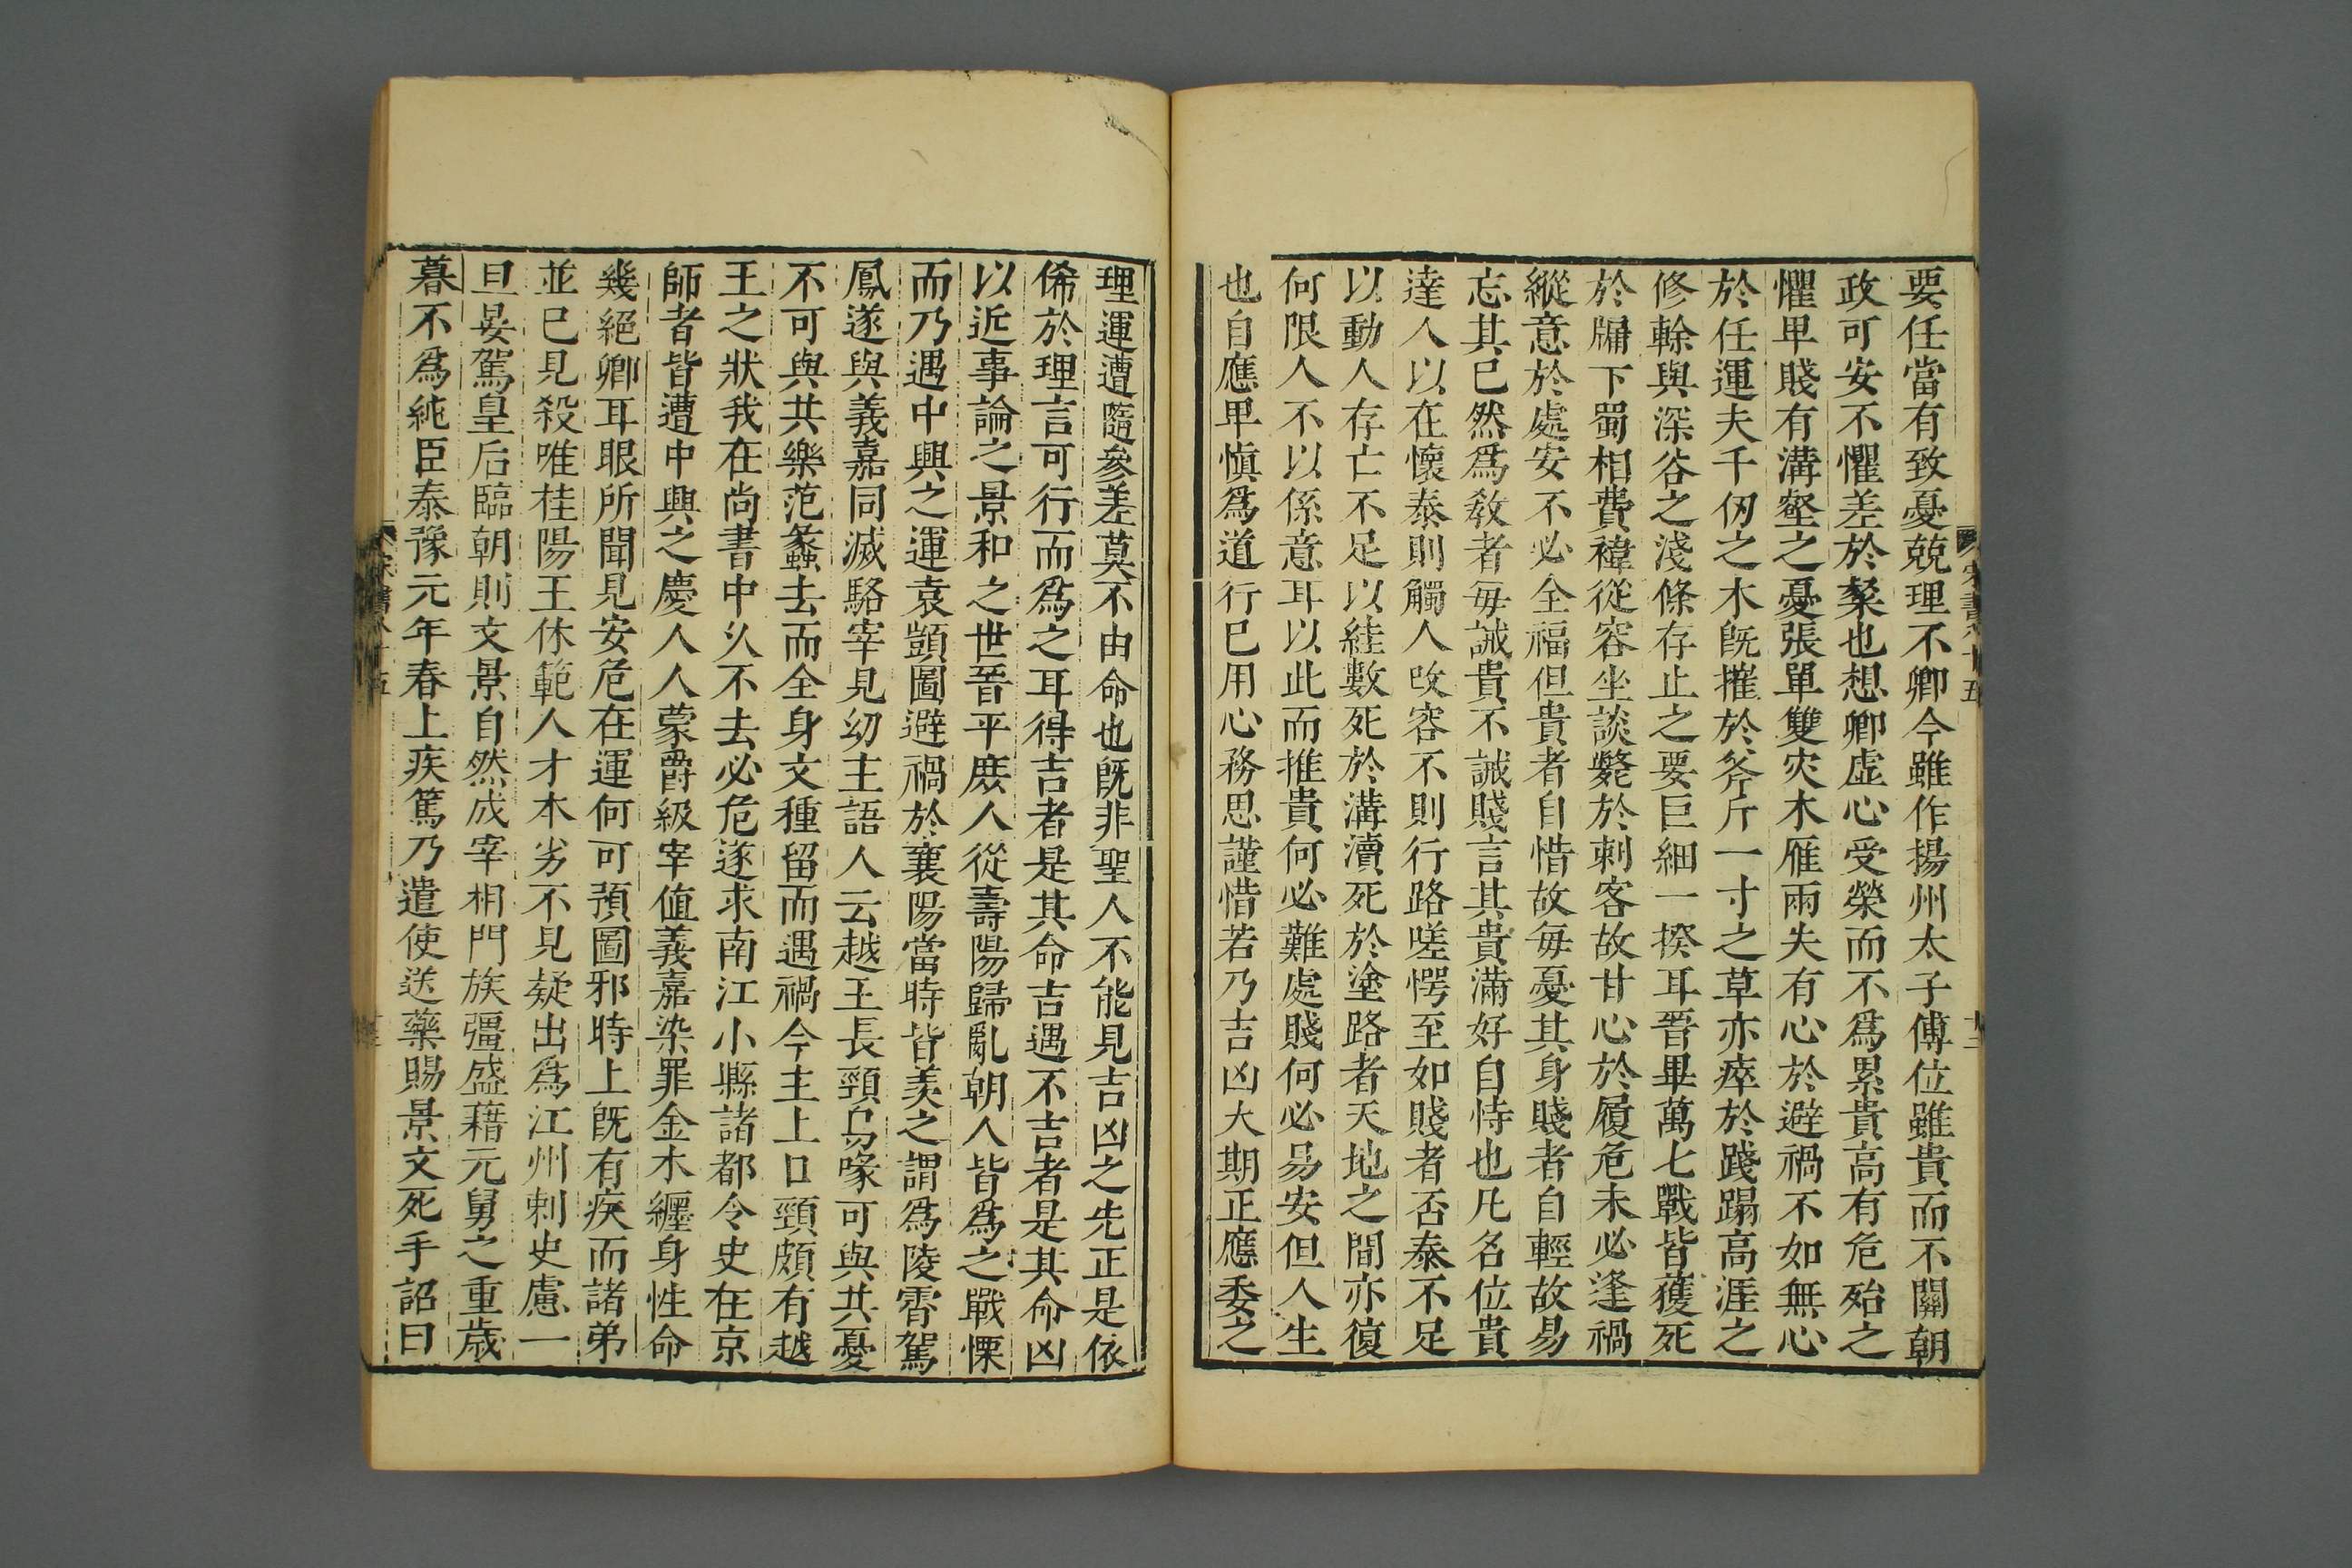 要任當有致憂兢理不卿今雖作揚州太子傅位雖貴而不關朝
政可安不懼差於粲也想卿虛心受榮而不爲累貴高有危殆之
懼卑賤有溝壑之憂張單雙灾木雁兩失有心於避禍不如無心
於任運夫千仞之木既摧於斧斤一寸之草亦瘁於踐蹋高涯之
修榦與深谷之淺條存止之要巨細一揆耳晉畢萬七戰皆獲死
於牖下蜀相費禕從容坐談斃於刺客故甘心於履危未必逢禍
縱意於處安不必全福但貴者自惜故每憂其身賤者自輕故易
忘其已然爲敎者每誡貴不誡賤言其貴滿好自恃也凡名位貴
達人以在懷泰則觸人改容不則行路嗟愕至如賤者否泰不足
以動人存亡不足以絓數死於溝瀆死於塗路者天地之間亦復
何限人不以係意耳以此而推貴何必難處賤何必易安但人生
也自應卑愼爲道行已用心務思謹惜若乃吉凶大期正應委之
理運遭隨參差莫不由命也既非聖人不能見吉凶之先正是依
俙於理言可行而爲之耳得吉者是其命吉遇不吉者是其命凶
以近事論之景和之世晉平庶人從壽陽歸亂朝人皆爲之戰慄
而乃遇中興之運袁顗圖避禍於襄陽當時皆羨之謂爲陵霄駕
鳳遂與義嘉同滅駱宰見幼主語人云越王長頸烏喙可與共憂
不可與共樂范蠡去而全身文種留而遇禍今主上口頸頗有越
王之狀我在尚書中乆不去必危遂求南江小縣諸都令史在京
師者皆遭中興之慶人人蒙爵級宰値義嘉染罪金木纒身性命
幾絕卿耳眼所聞見安危在運何可預圖邪時上既有疾而諸弟
並已見殺唯桂陽王休範人才本劣不見疑出爲江州刺史慮一
旦晏駕皇后臨朝則文景自然成宰相門族彊盛藉元舅之重歲
暮不爲純臣泰豫元年春上疾篤乃遣使送藥賜景文死手詔曰